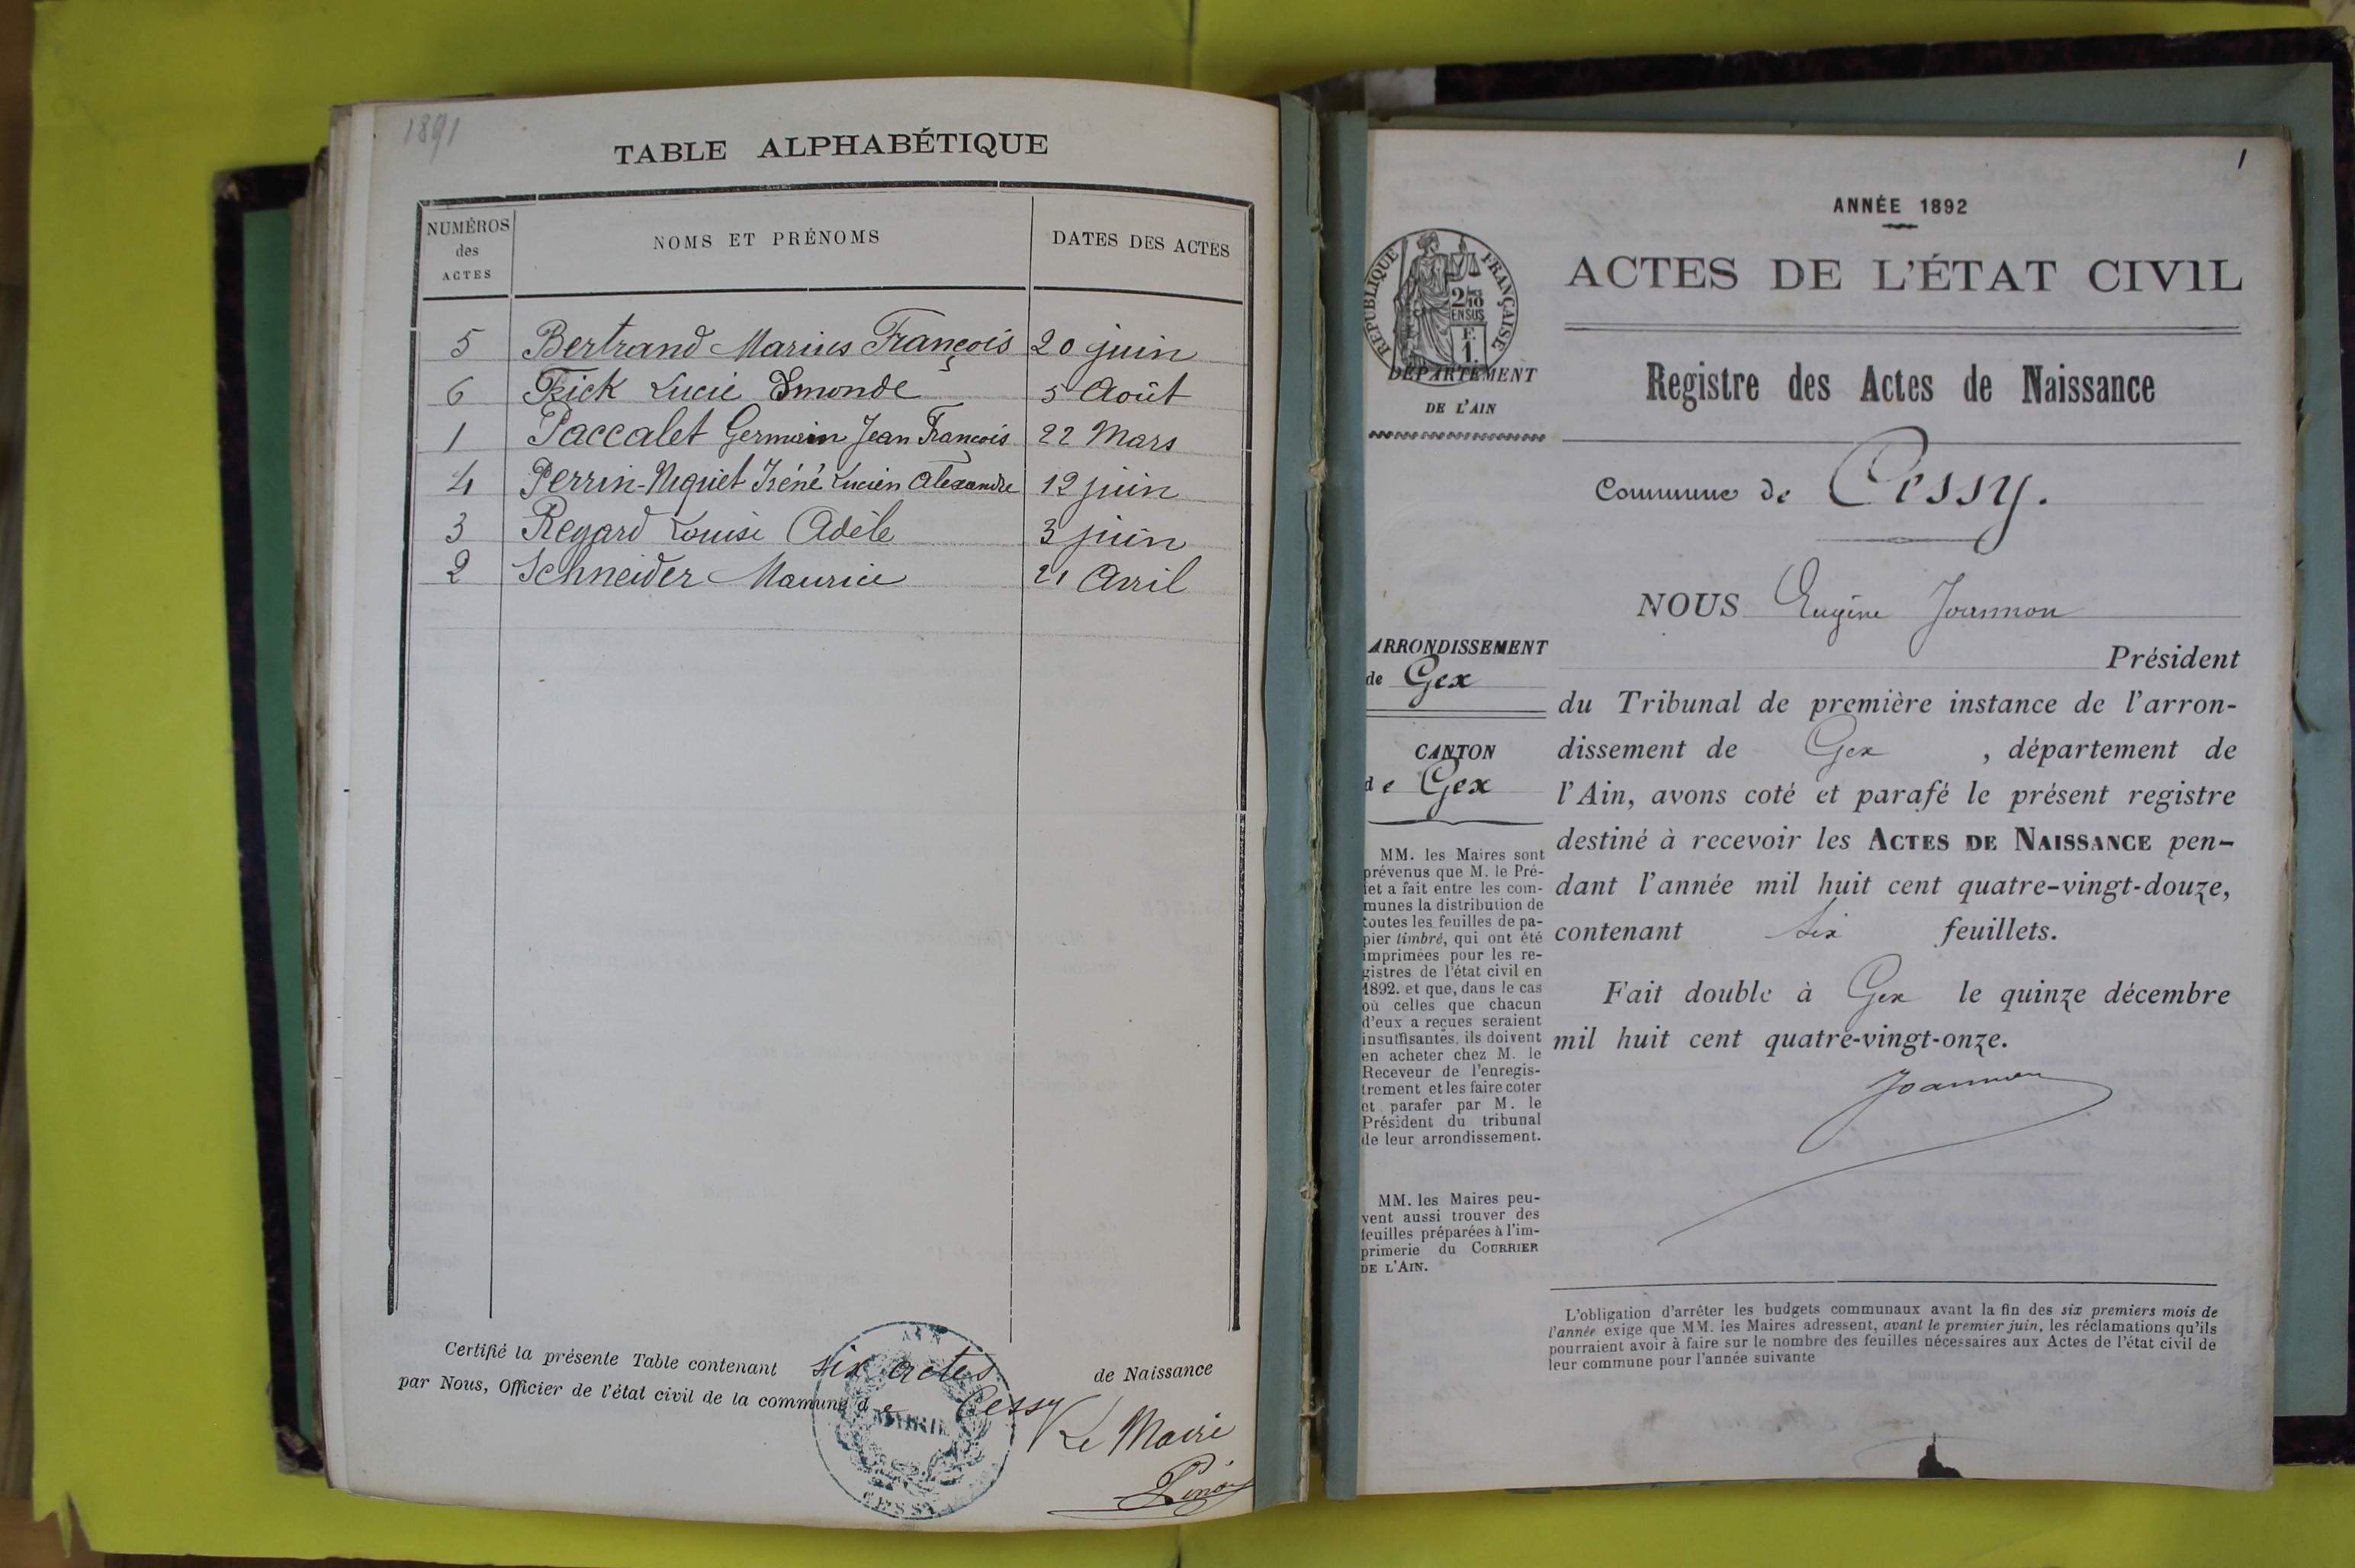 1891
TABLE ALPHABÉTIQUE
NUMÉROS des ACTES NOMS ET PRÉNOMS DATES DES ACTES
5 Bertrand Marius François 20 juin
6 Frick Lucie Esmonde 5 Août
1 Paccalet Germain Jean François 22 Mars
4 Perrin-Niquet Iréné Lucien Alexandre 12 juin
3 Regard Louise Adèle 3 juin
2 Schneider Maurice 21 Avril
Certifié la présente Table contenant six actes de Naissance
par Nous, Officier de l'état civil de la commune de Cessy
Le Maire
MAIRIE
CESSY
AIN
1
ANNÉE 1892
ACTES DE L'ÉTAT CIVIL
RÉPUBLIQUE FRANÇAISE
2/10
EN SUS
F.
1.
DÉPARTEMENT
DE L'AIN
Registre des Actes de Naissance
Commune de Cessy.
NOUS Eugène Joannon
Président
du Tribunal de première instance de l'arron-
dissement de Gex , département de
l'Ain, avons coté et parafé le présent registre
destiné à recevoir les ACTES DE NAISSANCE pen-
dant l'année mil huit cent quatre-vingt-douze,
contenant six feuillets.
Fait double à Gex le quinze décembre
mil huit cent quatre-vingt-onze.
Joannon
ARRONDISSEMENT
de Gex
CANTON
de Gex
MM. les Maires sont
prévenus que M. le Pré-
fet a fait entre les com-
munes la distribution de
toutes les feuilles de pa-
pier timbré, qui ont été
imprimées pour les re-
gistres de l'état civil en
1892. et que, dans le cas
où celles que chacun
d'eux a reçues seraient
insuffisantes, ils doivent
en acheter chez M. le
Receveur de l'enregis-
trement et les faire coter
et parafer par M. le
Président du tribunal
de leur arrondissement.
MM. les Maires peu-
vent aussi trouver des
feuilles préparées à l'im-
primerie du COURRIER
DE L'AIN.
L'obligation d'arrêter les budgets communaux avant la fin des six premiers mois de
l'année exige que MM. les Maires adressent, avant le premier juin, les réclamations qu'ils
pourraient avoir à faire sur le nombre des feuilles nécessaires aux Actes de l'état civil de
leur commune pour l'année suivante